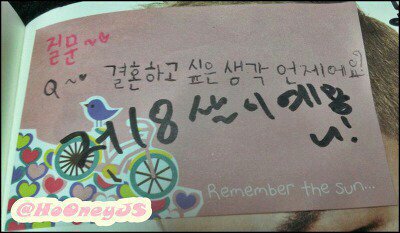 질문~♥
Q~♥ 결혼하고 싶은 생각 언제에요
저 18살이에용
Remember the sun...
@HoOneyJS